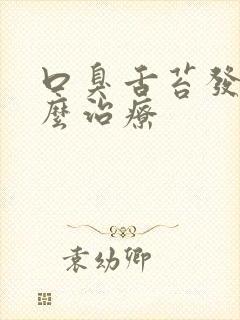 口臭舌苔發
麼治療
袁幼卿